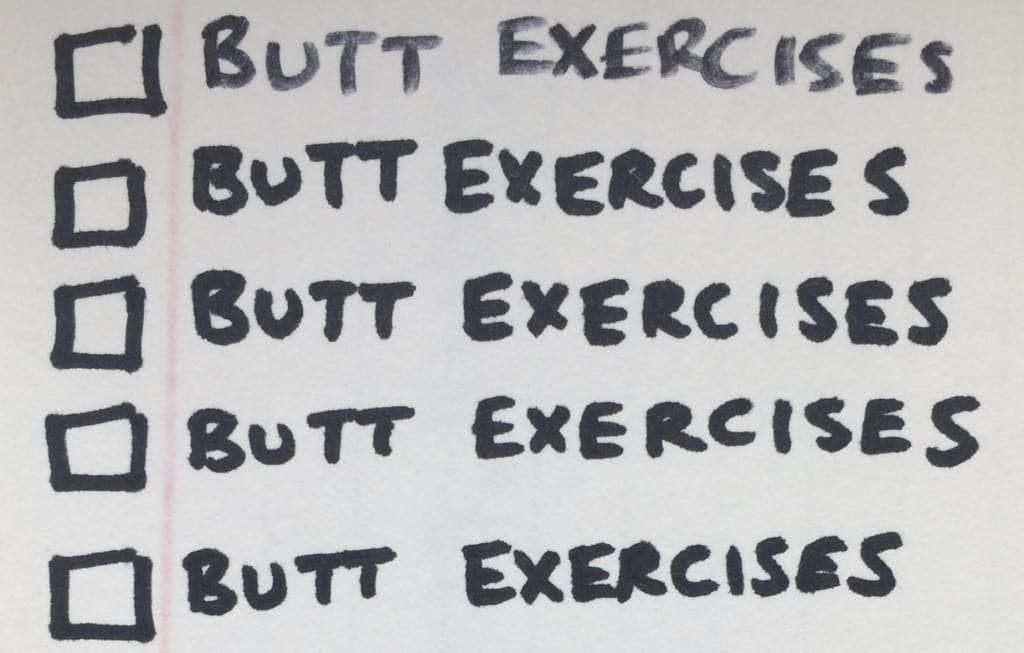 BUTT EXERCISES
BUTT EXERCISES
BUTT EXERCISES
BUTT EXERCISES
BUTT EXERCISES